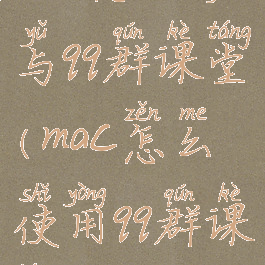 yǔ qún kè táng
与99群课堂
zěn me
(mac怎么
shǐ yòng qún kè
使用99群课